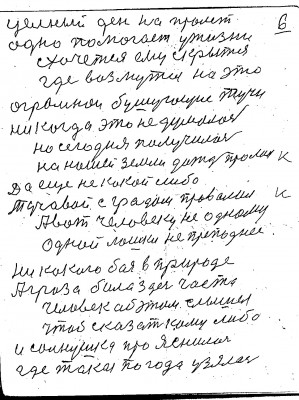 6
целный ден на пролит
одно помогает у жизни
схочется ему скрытся
где возмутки на это
огромной бушующие тучи
никогда это не думолось
но сегодня получилось
на нашей земли дата пролих к
Да еще не какой либо
Тучавой с градом провалил к
А вот человеку не одному
одной лошки не преподнес
ни какого боя в природе
А гроза била здес часта
человек об этом слышил
чтоб сказат кому либо
и солнушка про яснилос
где такая погода узялас